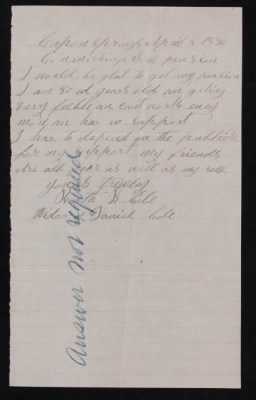 Capon Springs April 8
Commishiner of pension
I would be glad to get my pension
I am 80 od years old an geting
very febble an cant work eney
more an hav no support
I hav to depend on the publick
for my support my friends
Are all poor as well as my self
yours truley
Cole
Widow Daniel Cole
Answer not required